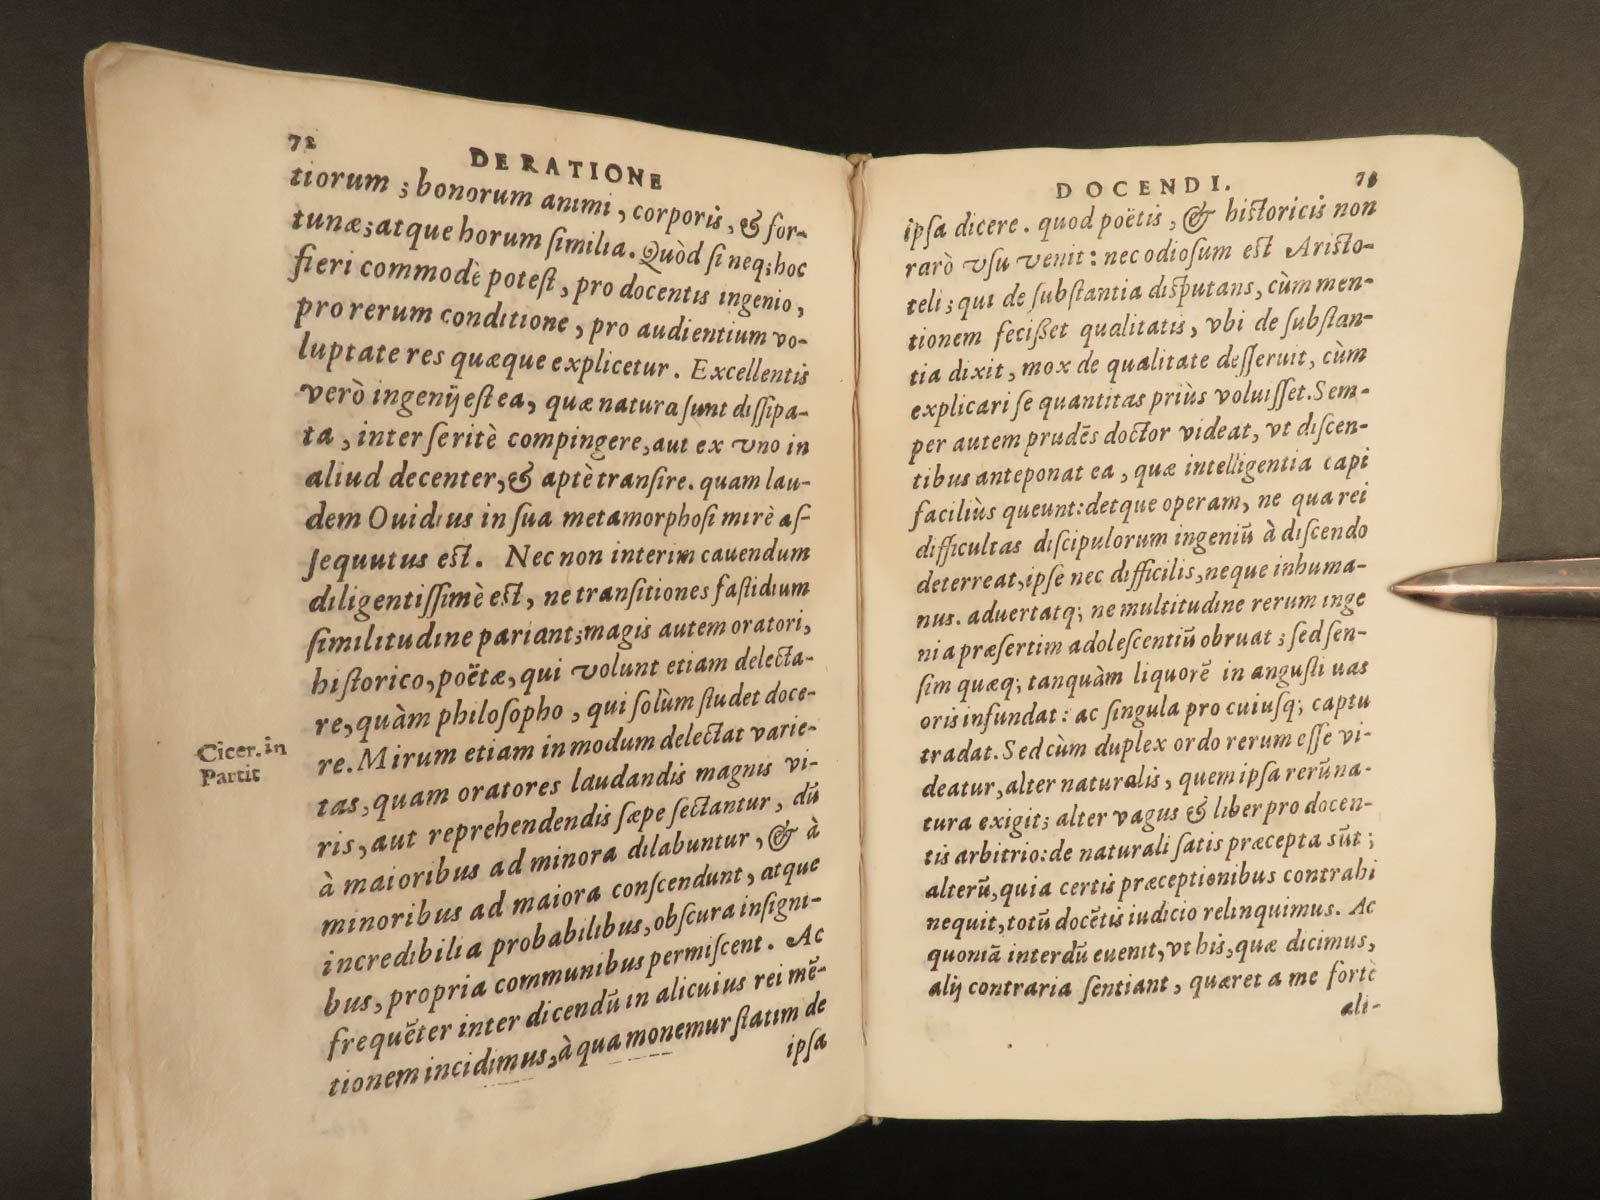 72
DE RATIONE
tiorum ; bonorum animi , corporis , & for-
tunæ; atque horum similia. Quòd si neq; hoc
fieri commodè potest , pro docentis ingenio ,
pro rerum conditione , pro audientium vo-
luptate res quæque explicetur . Excellentis
verò ingenij est ea, quæ natura sunt dissipa-
ta , inter se ritè compingere, aut ex vno in
aliud decenter, & aptè transire. quam lau-
dem Ouidius in sua metamorphosi mirè as-
sequutus est. Nec non interim cauendum
diligentissimè est, ne transitiones fastidium
similitudine pariant; magis autem oratori,
historico, poëtæ, qui volunt etiam delecta-
re, quàm philosopho , qui solùm studet doce-
re. Mirum etiam in modum delectat varie-
tas, quam oratores laudandis magnis vi-
ris, aut reprehendendis sæpe sectantur, dū
à maioribus ad minora dilabuntur, & à
minoribus ad maiora conscendunt, atque
incredibilia probabilibus, obscura insigni-
bus, propria communibus permiscent. Ac
frequēter inter dicendū in alicuius rei mē-
tionem incidimus, à qua monemur statim de
ipsa
Cicer. in
Partit
DOCENDI.
73
ipsa dicere. quod poëtis, & historicis non
rarò vsu venit: nec odiosum est Aristo-
teli; qui de substantia disputans, cùm men-
tionem fecißet qualitatis, vbi de substan-
tia dixit, mox de qualitate desseruit, cùm
explicari se quantitas priùs voluisset. Sem-
per autem prudēs doctor videat, vt discen-
tibus anteponat ea, quæ intelligentia capi
faciliùs queunt: detque operam, ne qua rei
difficultas discipulorum ingeniū à discendo
deterreat, ipse nec difficilis, neque inhuma-
nus. aduertatq; ne multitudine rerum inge
nia præsertim adolescentiū obruat ; sed sen-
sim quæq; tanquàm liquorē in angusti uas
oris infundat: ac singula pro cuiusq; captu
tradat. Sed cùm duplex ordo rerum esse vi-
deatur, alter naturalis, quem ipsa rerū na-
tura exigit; alter vagus & liber pro docen-
tis arbitrio: de naturali satis præcepta sūt ;
alterū, quia certis præceptionibus contrahi
nequit, totū docētis iudicio relinquimus. Ac
quoniā interdū euenit, vt his, quæ dicimus,
alij contraria sentiant, quæret a me fortè
ali-